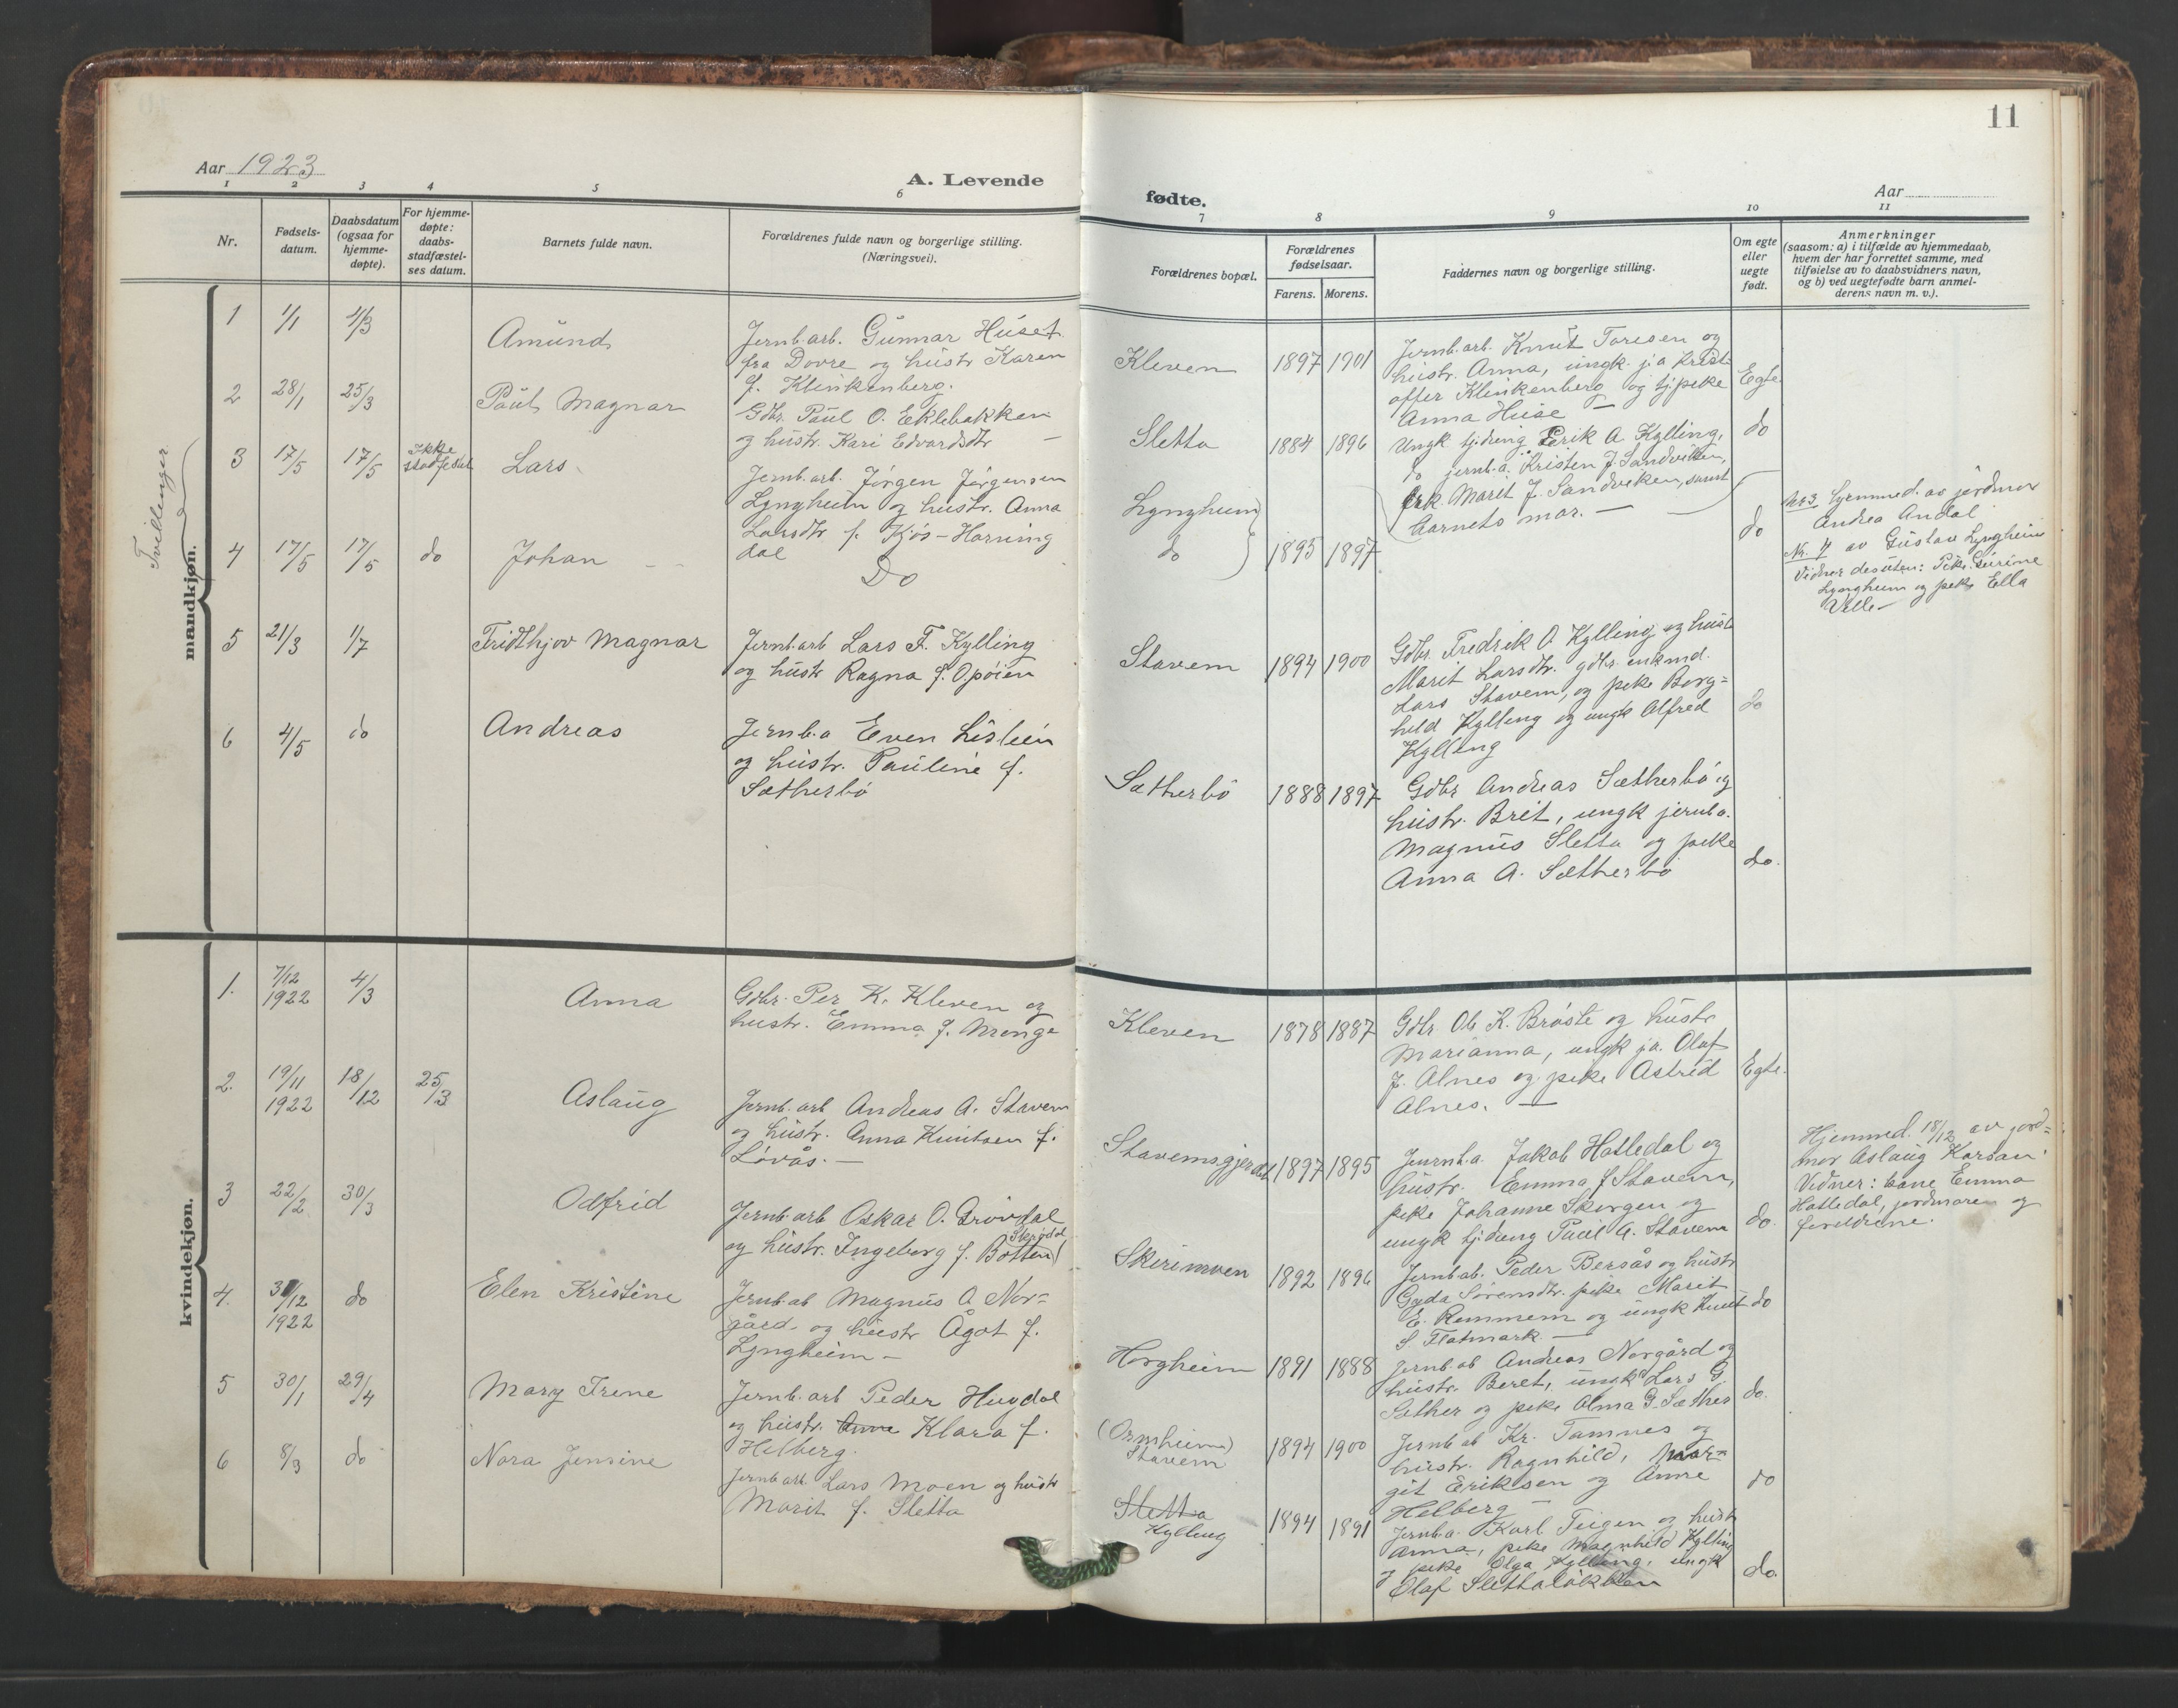 11
Aar 1923
A. Levende
fødte.
Aar
1 2 3 4 5 6 7 8 9 10 11
Nr.
Fødsels-
datum.
Daabsdatum
(ogsaa for
hjemme-
døpte).
For hjemme-
døpte:
daabs-
stadfæstel-
ses datum.
Barnets fulde navn.
Forældrenes fulde navn og borgerlige stilling.
(Næringsvei).
Forældrenes bopæl.
Forældrenes
fødselsaar.
Farens. Morens.
Faddernes navn og borgerlige stilling.
Om egte
eller
uegte
født.
Anmerkninger
(saasom: a) i tilfælde av hjemmedaab,
hvem der har forrettet samme, med
tilføielse av to daabsvidners navn,
og b) ved uegtefødte barn anmel-
derens navn m. v.).
mandkjøn.
Tvillinger
1 1/1 4/3
Amund
Jernb.arb. Gunnar Huset
fra Dovre og hustr Karen
f. Klinkenberg.
Kleven 1897 1901
Jernb.arb. Knut Toresen og
hustr. Anna, ungk. j.a Krist-
offer Klinkenberg og tj.peke
Anna Huse —
Egte.
2 28/1 25/3
Paul Magnar
Gdbr. Paul O. Eklebakken
og hustr. Kari Edvardsdtr —
Sletta 1884 1896
Ungk tjdreng Erik A Kylling,
do jernb.a. Kristen J. Sandviken,
frk. Marit J. Sandviken, samt
barnets mor. —
do
3 17/5 17/5
Ikke
stadfestet
Lars
Jernb.arb. Jörgen Jörgensen
Lyngheim og hustr. Anna
Larsdtr f. Kjös-Harning
dal
Lyngheim
do
Nr 3 hjemmed. av jordmor
Andrea Andal
Nr. 4 av Gustav Lyngheim
Vidner desuten: Pike
Lyngheim og peke Ella
Velle —
4 17/5 17/5 do
Johan
Do
do 1895 1897
5 21/3 1/7
Fridthjov Magnar
Jernb.arb Lars F. Kylling
og hustr Ragna f. Opöien
Stavem 1894 1900
Gdbr. Fredrik A Kylling og hust
Marit Larsdtr. gdbr. enkmd.
Lars Stavem, og peke Borg=
hild Kylling og ungk Alfred
Kylling
do
6 4/5 do
Andreas
Jernb.a Even Lislien
og hustr. Pauline f.
Sætherbö
Sætherbö 1888 1897
Gdbr Andreas Sætherbö og
hustr. Brit, ungk jernb.a.
Magnus Sletta og peke
Anna A. Sætherbö
do.
kvindekjøn.
1. 7/12 1922 4/3
Anna
Gdbr. Per K. Kleven og
hustr. Emma f. Monge
Kleven 1878 1887
Gdbr Ole K. Bröste og hustr
Marianna, ungk ja. Olaf
J. Alnes og peke Astrid
Alnes. —
Egte.
2. 19/11 1922 18/12 25/3
Aslaug
Jernb.arb Andreas A. Stavem
og hustr. Anna Knutsen f.
Lövås. —
Stavemsgjerdet 1897 1895
Jernb.a. Jakob Hatledal og
hustr. Emma f Stavem,
peke Johanne Skorgen og
ungk tj.dreng Paul A. Stavem
do.
Hjemmed. 18/12 av jord=
mor Aslaug Karsan.
Vidner: kone Emma
Hatledal, jordmoren og
foreldrene.
3 22/2 30/3
Odfrid
Jernb.arb Oskar O. Grövdal
og hustr. Ingeborg f. Botten
Skirimoen 1892 1896
Jernb.ab. Peder Bersås og hustr
Gyda Sörensdtr. peke Marit
E. Remmem og ungk Knut
S Flatmark —
do
4. 31/12 1922 do
Elen Kristine
Jernb.ab Magnus A Nor=
gård og hustr Ågot f.
Lyngheim —
Horgheim 1891 1888
Jernb.ab Andreas Norgård og
hustr. Beret, ungk Lars G
Sæther og peke Alma G. Sæther
do.
5 30/1 29/4
Mary Irene
Jernb.arb Peder Hugdal
og hustr. Anna Klara f.
Helberg.
(Ormheim)
Stavem
1894 1900
Jernb.ab Kr. Tamnes og
hustr. Ragnhild, Mar=
git Eriksen og Anne
Helberg —
do
6 8/3 do
Nora Jensine
Jernb.arb. Lars Moen og hustr
Marit f. Sletta
Sletta
Kylling
1894 1891
Jernb.a. Karl Teigen og hustr
Anna, peke Magnhild Kylling
og peke Olga Kylling, ungk
Olaf Slettalökken
do.